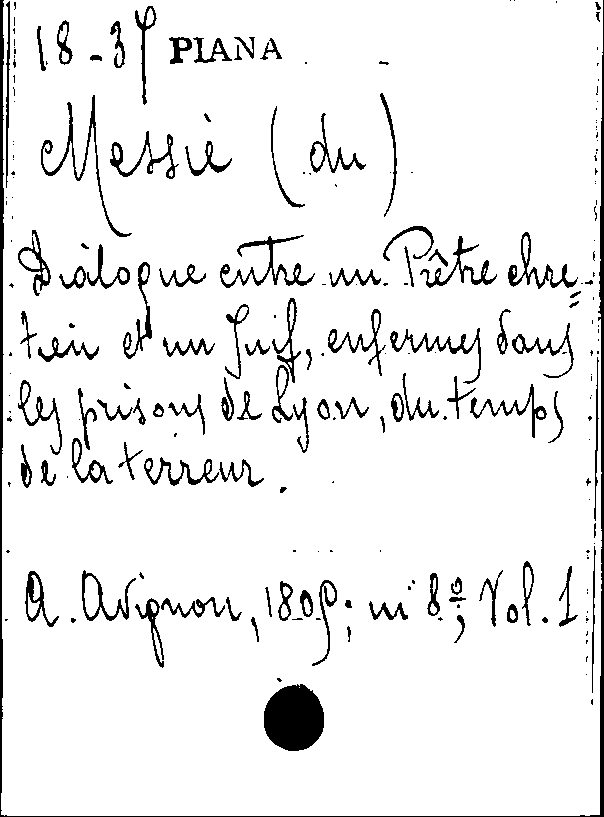 18-39 PIANA
Messie (du)
Dialogue entre un Prêtre chre=
tien et un Juif, enfermés dans
les prisons de Lyon, du temps
de la terreur.
A. Avignon, 1809; in 8º; Vol. 1